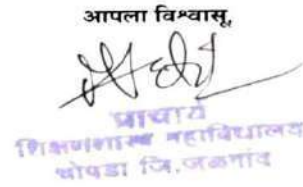 आपला विश्वासू,
प्राचार्य
शिक्षणशास्त्र महाविद्यालय
चोपडा जि.जळगांव